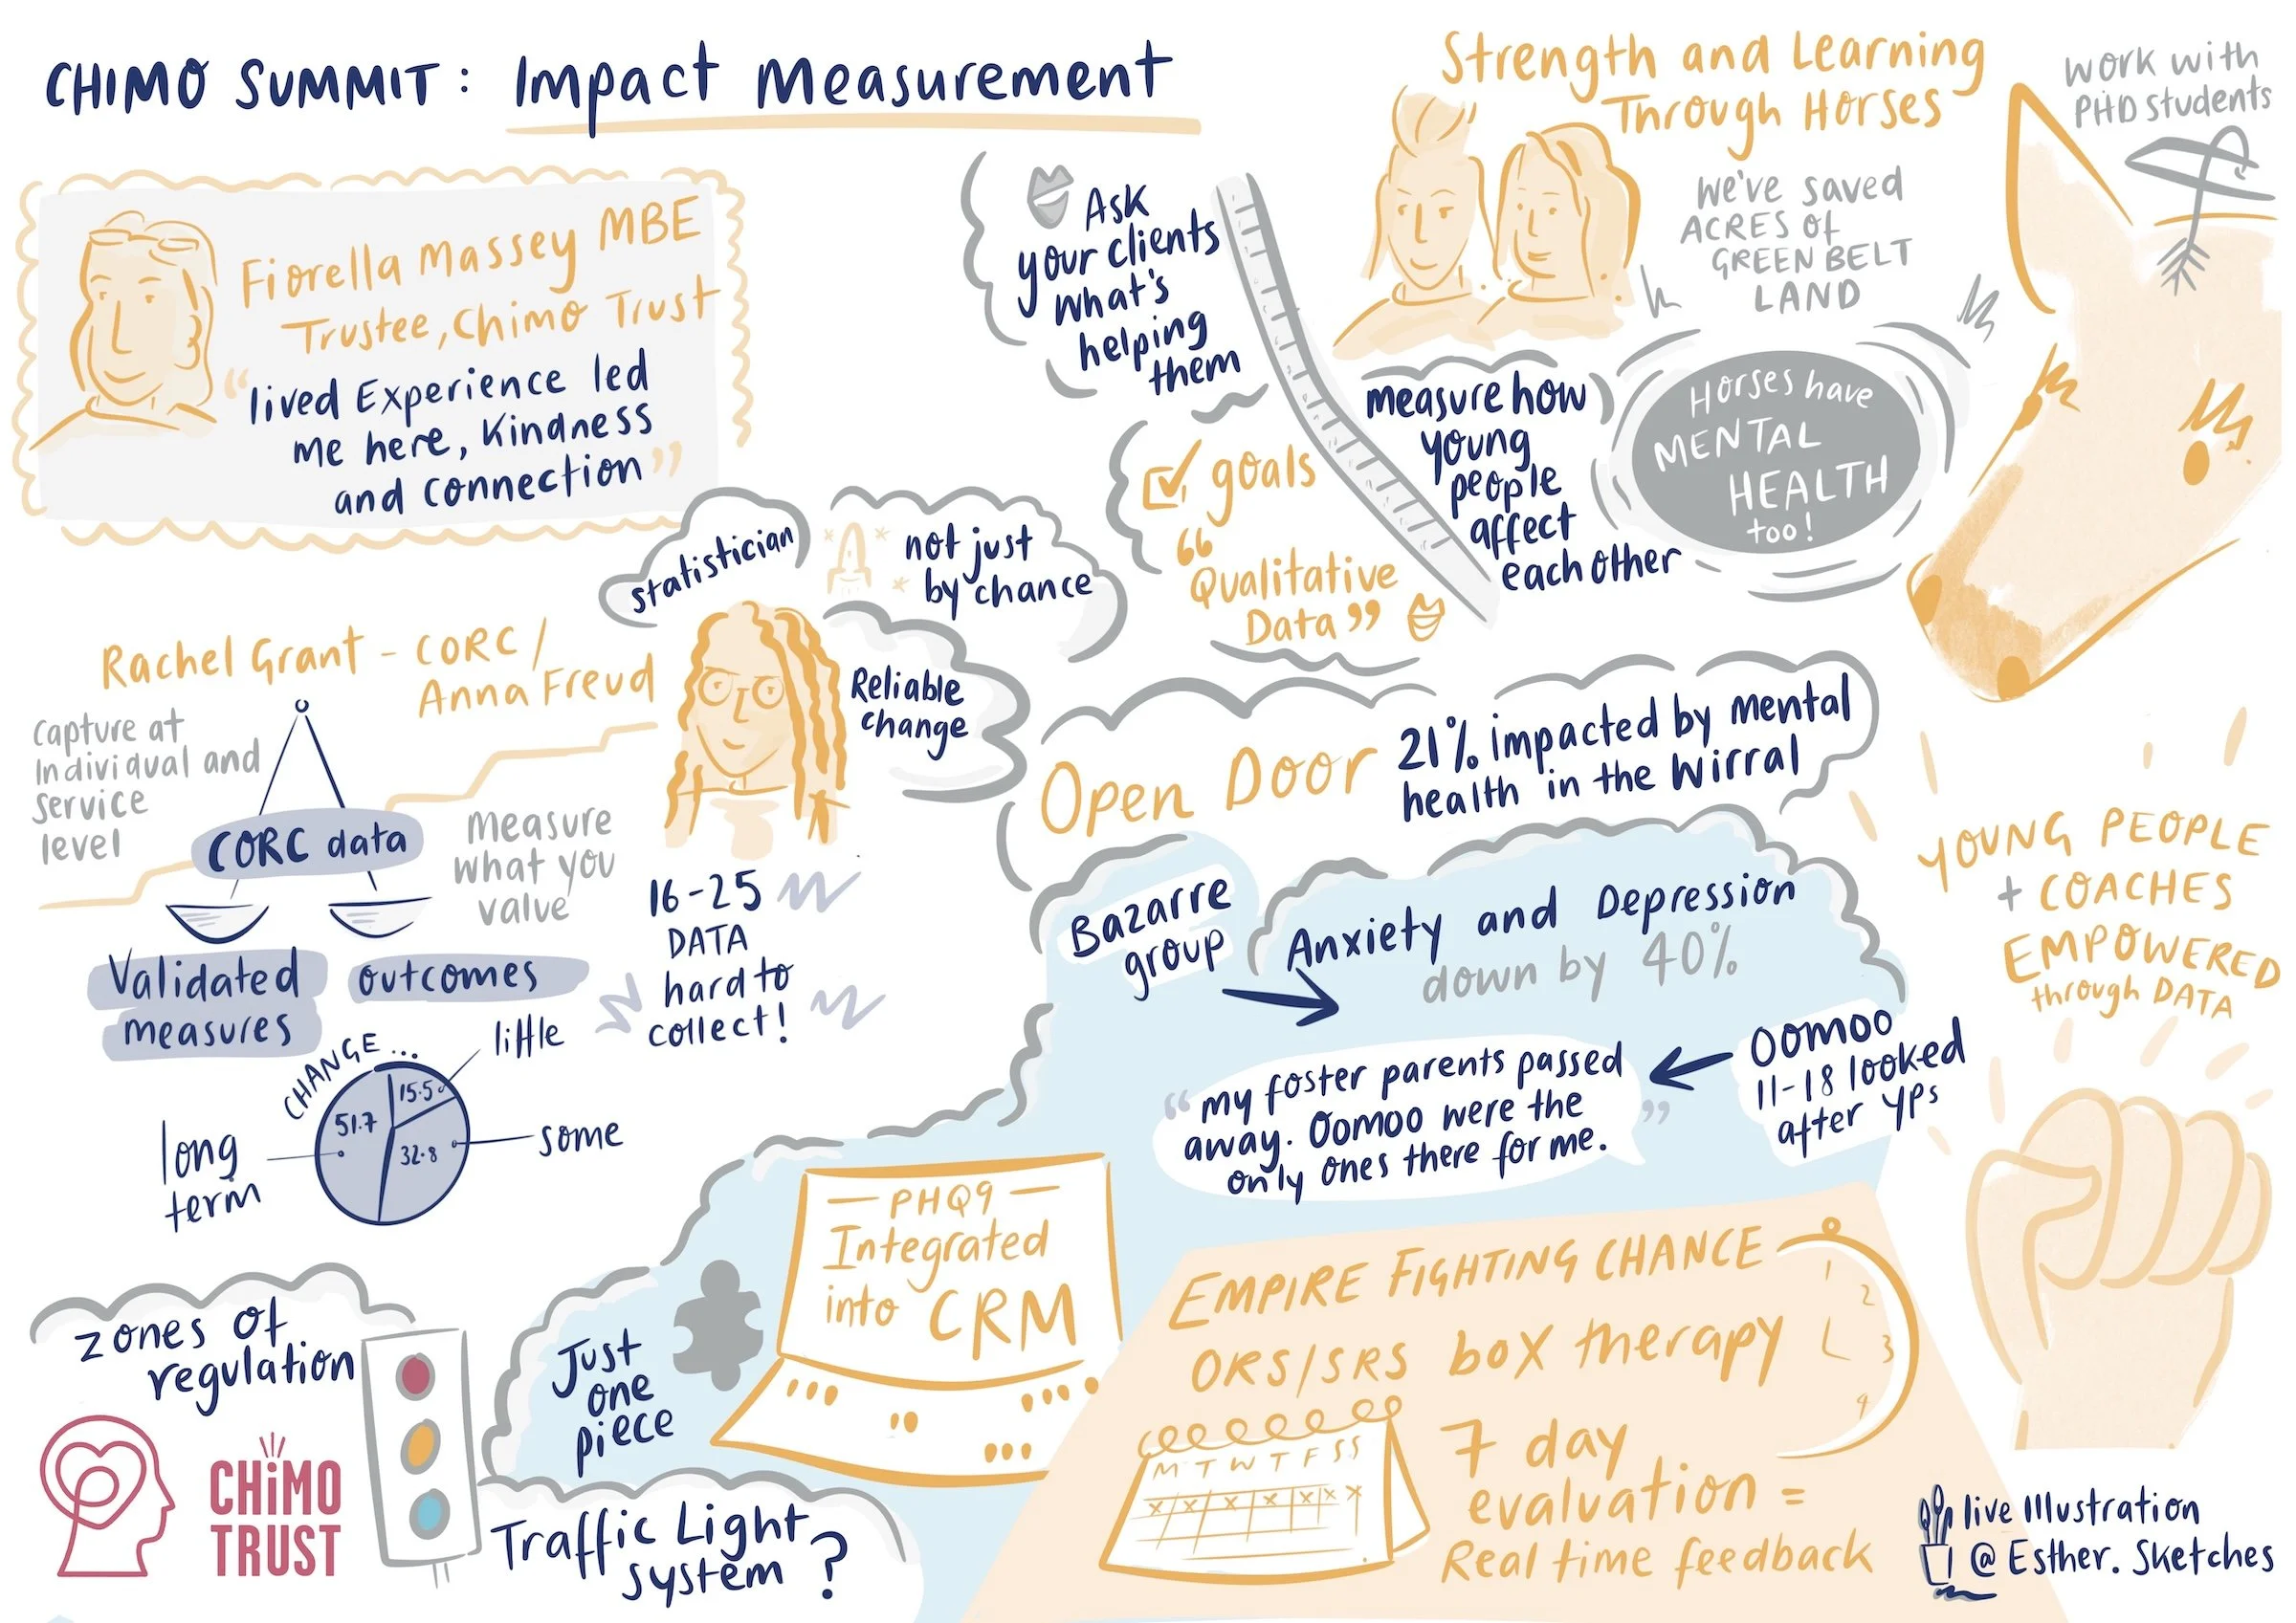 CHIMO SUMMIT: Impact Measurement
Fiorella Massey MBE
Trustee, Chimo Trust
"lived Experience led
me here, Kindness
and connection"
Ask
your clients
what's
helping
them
goals
"Qualitative
Data"
Strength and Learning
Through Horses
We've saved
ACRES of
GREEN BELT
LAND
work with
PHD students
measure how
young
people
affect
each other
Horses have
MENTAL
HEALTH
too!
statistician
not just
by chance
Reliable
change
Rachel Grant - CORC/
Anna Freud
Capture at
Individual and
Service
level
CORC data
measure
what you
value
Validated
measures
outcomes
16-25
DATA
hard to
collect!
CHANGE...
little
15.5
51.7
32.8
long
term
some
Open Door
21% impacted by mental
health in the Wirral
Bazarre
group
Anxiety and Depression
down by 40%
Oomoo
11-18 looked
after YPs
"my foster parents passed
away. Oomoo were the
only ones there for me."
YOUNG PEOPLE
+ COACHES
EMPOWERED
through DATA
Just
one
piece
PHQ9
Integrated
into CRM
zones of
regulation
Traffic Light
system?
EMPIRE FIGHTING CHANCE
ORS/SRS box therapy
1
2
3
4
M T W T F S S
x x x x x x x
7 day
evaluation =
Real time feedback
CHiMO
TRUST
live Illustration
@Esther.Sketches